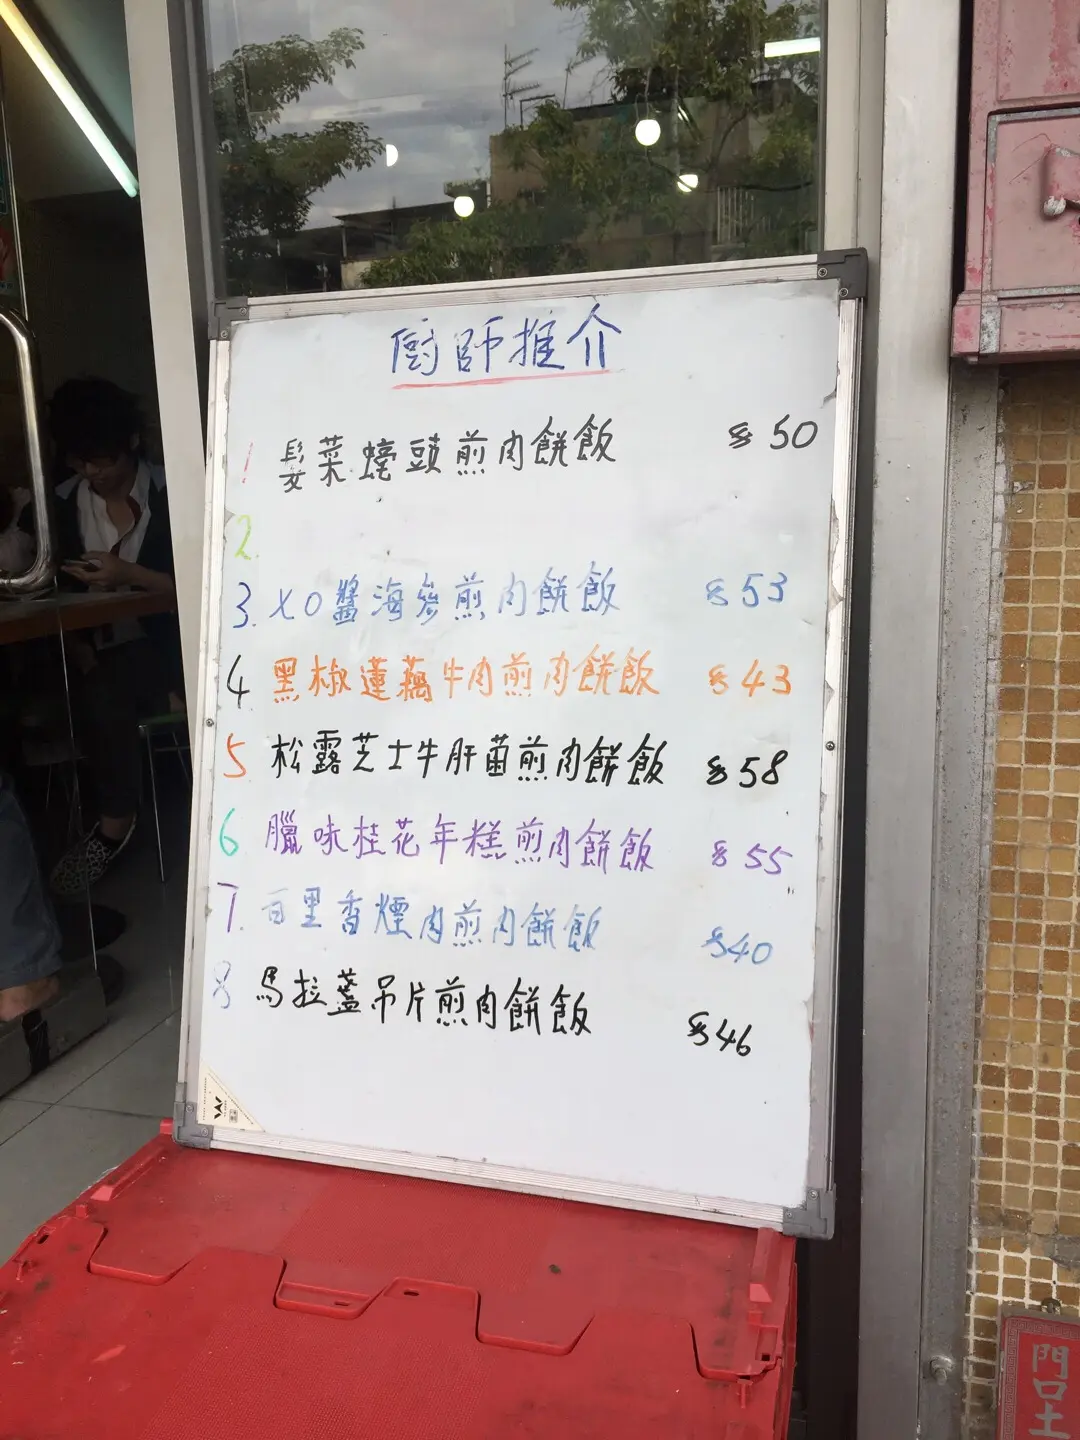 廚師推介
1 髮菜蠔頭煎肉餅飯 $50
2.
3. XO醬海參煎肉餅飯 $53
4 黑椒蓮藕牛肉煎肉餅飯 $43
5 松露芝士牛肝菌煎肉餅飯 $58
6 臘味桂花年糕煎肉餅飯 $55
7. 百里香煙肉煎肉餅飯 $40
8 馬拉盞吊片煎肉餅飯 $46
門口土